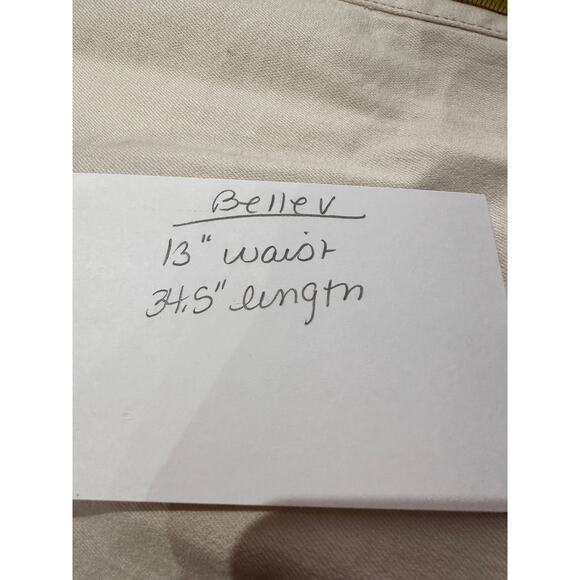 Bellev
13" waist
34.5" length